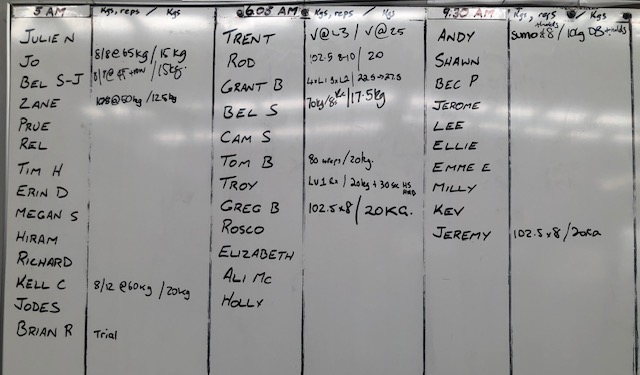 5 AM Kgs, reps / Kgs
JULIE N
JO 8/8@65kg/15kg
BEL S-J /15kg.
ZANE @50kg/12.5kg
PRUE
REL
TIM H
ERIN D
MEGAN S
HIRAM
RICHARD
KELL C 8/12@60kg/20kg
JODES
BRIAN R Trial
6.05 AM Kgs, reps / Kgs
TRENT V@ / V@25
ROD 102.5 8-10/20
GRANT B / 22.5→27.5
BEL S 70kg/8s/17.5kg
CAM S
TOM B 80 /20kg.
TROY LV1 / 20kg + 30 sec HS
GREG B 102.5x8/20KG.
ROSCO
ELIZABETH
ALI MC
HOLLY
9.30 AM Kgs, reps / Kgs
ANDY sumo x8 / 10kg DB
SHAWN
BEC P
JEROME
LEE
ELLIE
EMME E
MILLY
KEV
JEREMY 102.5x8/20KG